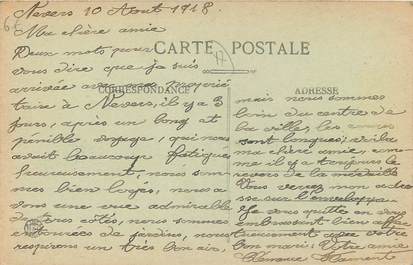 Nevers 10 Aout 1918
Ma chère amie
Deux mots pour
vous dire que je suis
arrivée avec
taire à Nevers, il y a 3
jours, après un long et
pénible voyage, qui nous
avait beaucoup fatigués
heureusement, nous som
mes bien logés, nous a
vons une vue admirable
de tous côtés, nous sommes
entourés de jardins, nous
respirons un très bon air.
CARTE POSTALE
CORRESPONDANCE
ADRESSE
mais nous sommes
loin du centre de
la ville, les
sont longues; voilà
ma chère amie, com
me il y a toujours le
revers de la médaille
Vous verrez mon adres
se sur l'enveloppe
Je vous quitte en vous
embrassant bien affec
tueusement avec votre
bon mari; Votre amie